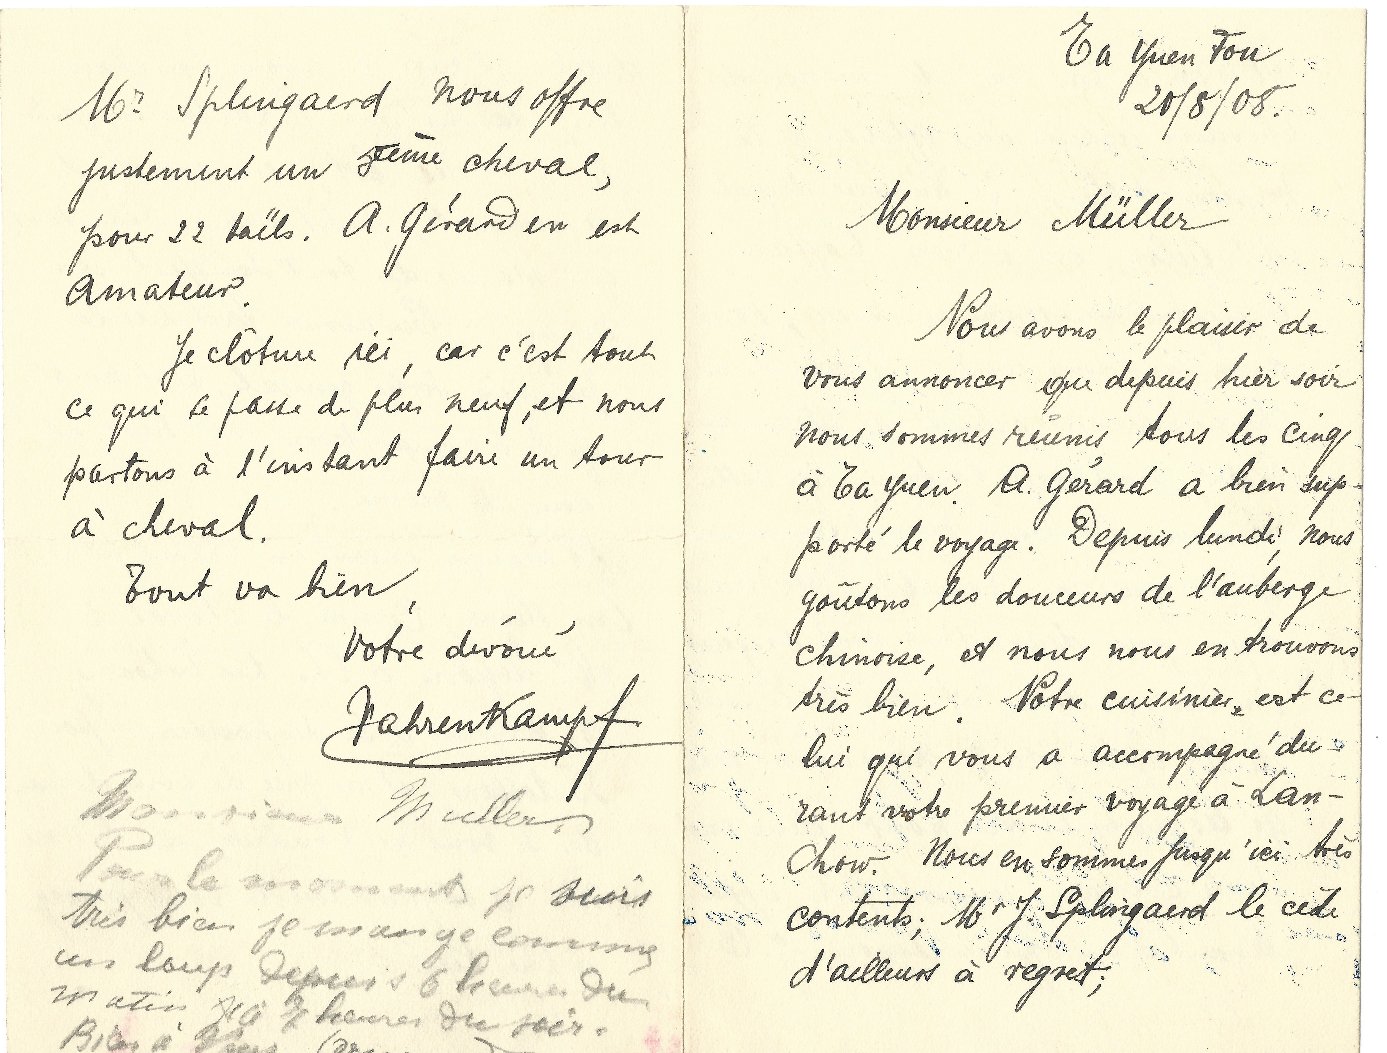 Ta Yuen Fou
20/8/08.
Monsieur Müller
Nous avons le plaisir de
vous annoncer que depuis hier soir
nous sommes réunis, tous les cinq
à Ta Yuen. A. Gérard a bien sup-
porté le voyage. Depuis lundi, nous
goûtons les douceurs de l'auberge
chinoise, et nous nous en trouvons
très bien. Notre cuisinier, est ce-
lui qui vous a accompagné du-
rant votre premier voyage à Lan-
chow. Nous en sommes jusqu'ici très
contents; Mr J. Splingaerd le cède
d'ailleurs à regret;
Mr Splingaerd nous offre
justement un 5ième cheval,
pour 22 taëls. A. Gérard en est
amateur.
Je clôture ici, car c'est tout
ce qui se passe de plus neuf, et nous
partons à l'instant faire un tour
à cheval.
Tout va bien,
Votre dévoué
Fahrenkampf
Monsieur Muller
Pour le moment je suis
très bien je mange comme
un loup depuis 6 heures du
matin à heures du soir.
Bien à vous